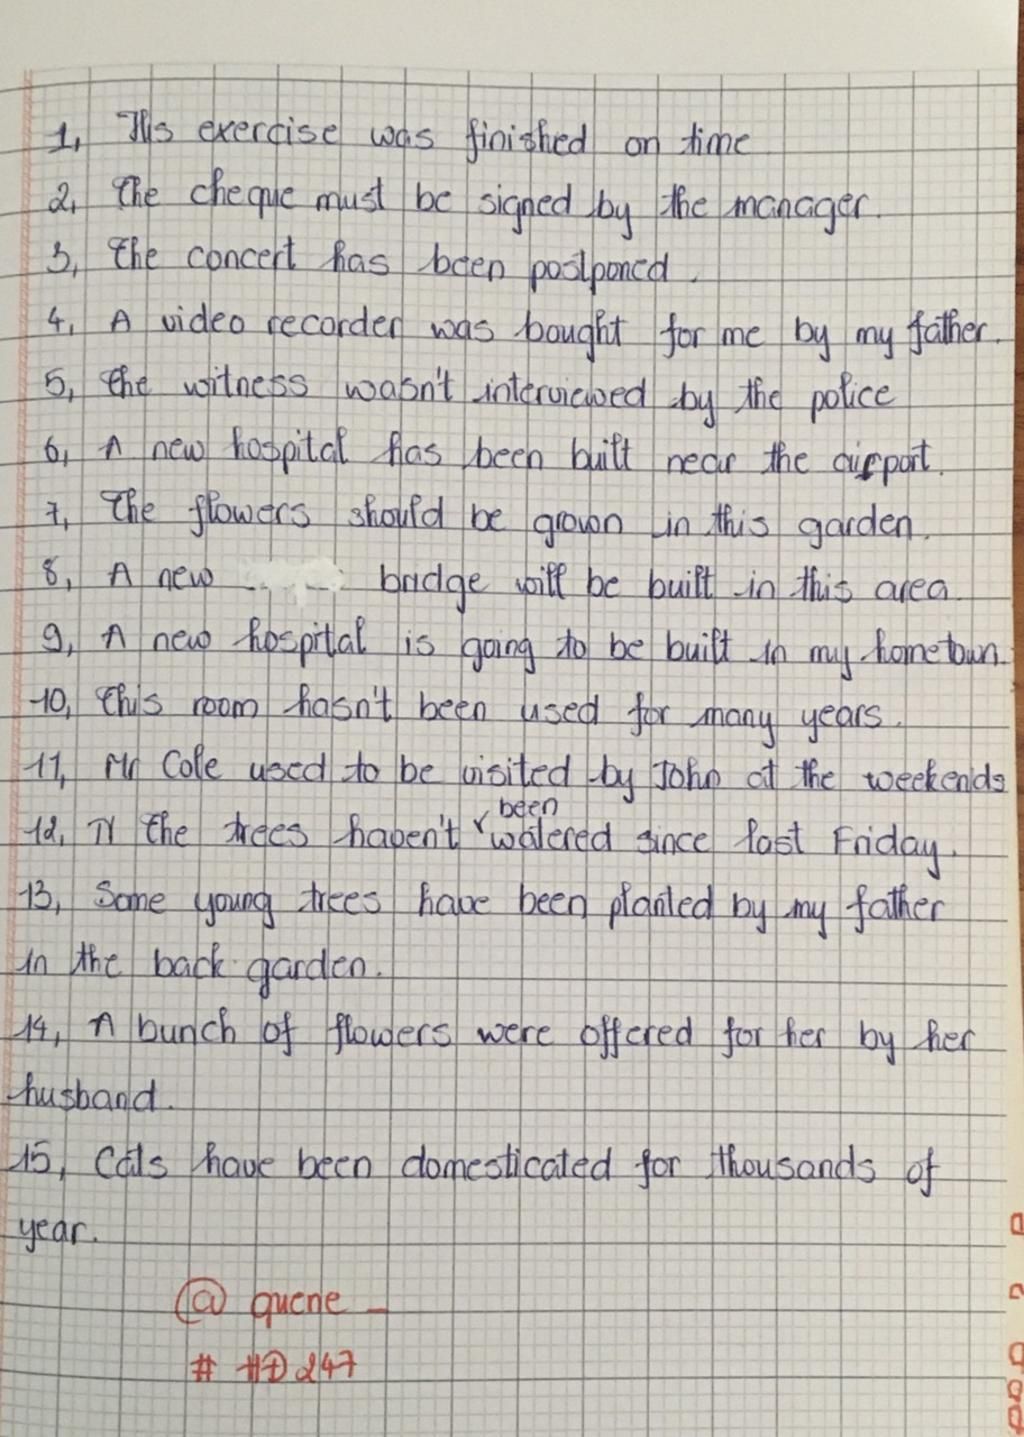 1, This exercise was finished on time
2, The cheque must be signed by the manager.
3, The concert has been postponed.
4, A video recorder was bought for me by my father.
5, The witness wasn't interviewed by the police
6, A new hospital has been built near the airport.
7, The flowers should be grown in this garden.
8, A new bridge will be built in this area
9, A new hospital is going to be built in my hometown.
10, This room hasn't been used for many years.
11, Mr Cole used to be visited by John at the weekends
12, The trees haven't been watered since last Friday.
13, Some young trees have been planted by my father
in the back garden.
14, A bunch of flowers were offered for her by her
husband.
15, Cats have been domesticated for thousands of
year.
@ quene _
# HD247